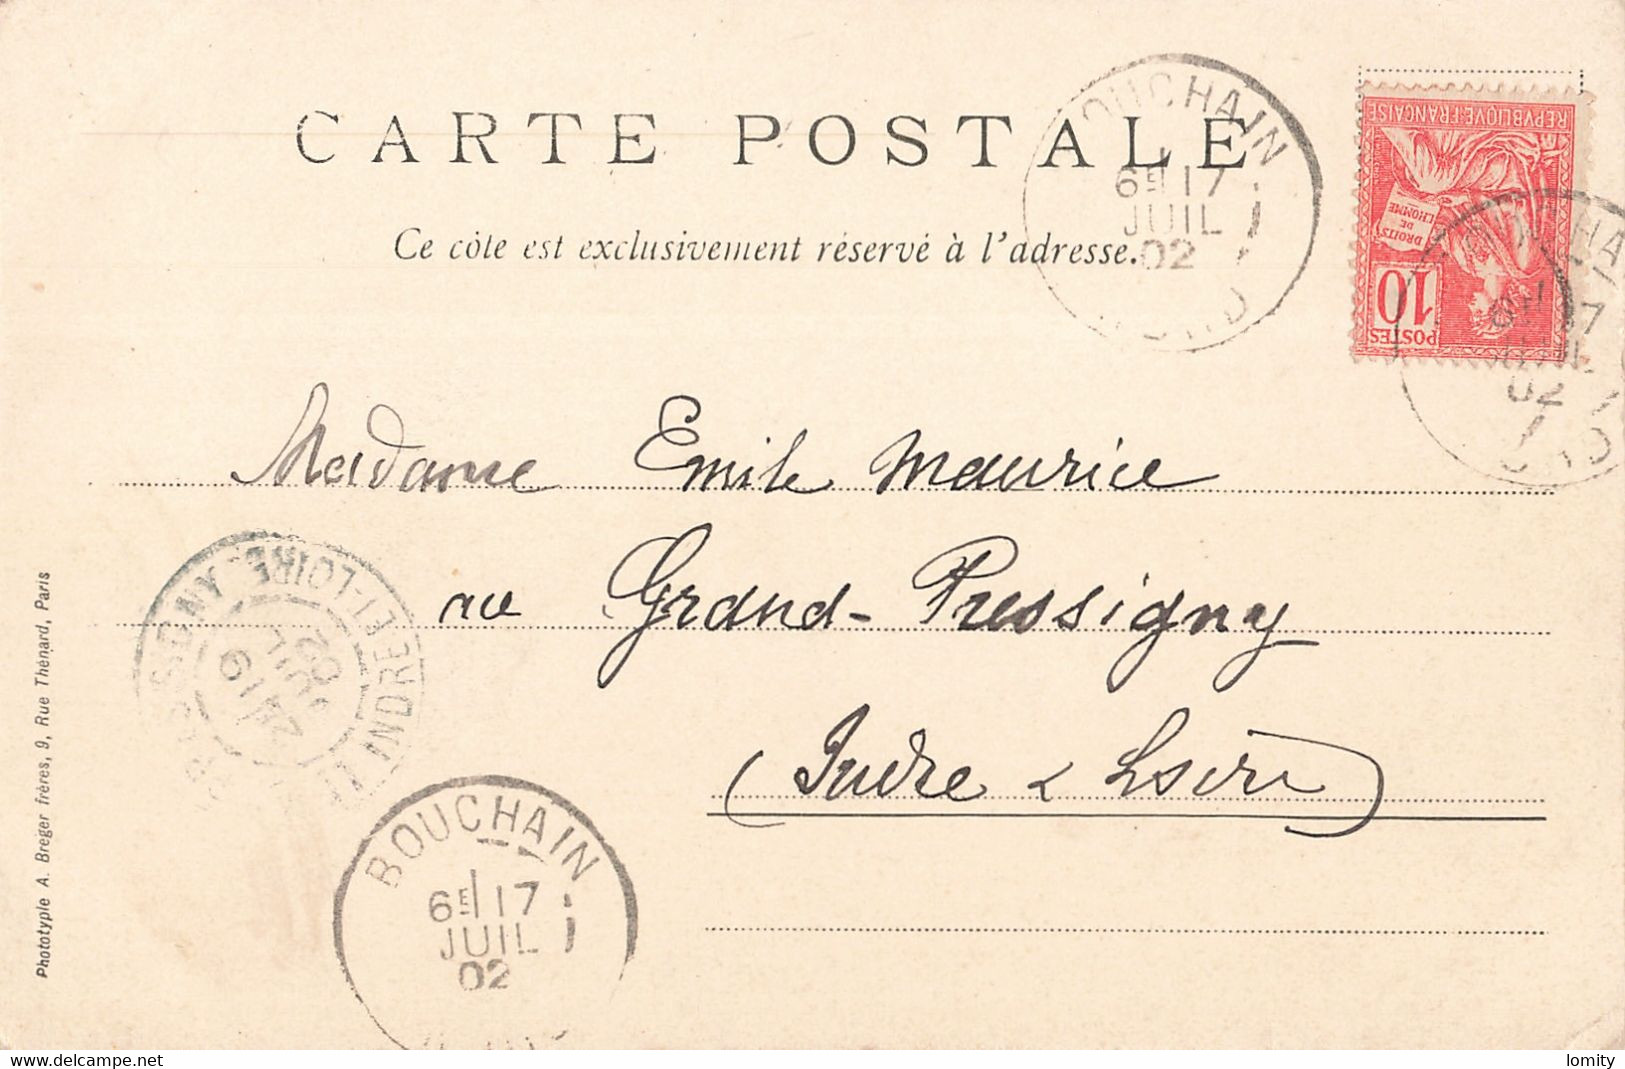 CARTE POSTALE
Ce côté est exclusivement réservé à l'adresse.
BOUCHAIN
6E 17
JUIL
02
REPVBLIQVE FRANÇAISE
DROITS
DE
L'HOMME
10
POSTES
02
Madame Emile Maurice
au Grand-Pressigny
(Indre & Loire)
INDRE-ET-LOIRE
19
JUIL
02
BOUCHAIN
6E 17
JUIL
02
Phototypie A. Breger frères, 9, Rue Thénard, Paris
www.delcampe.net
lomity